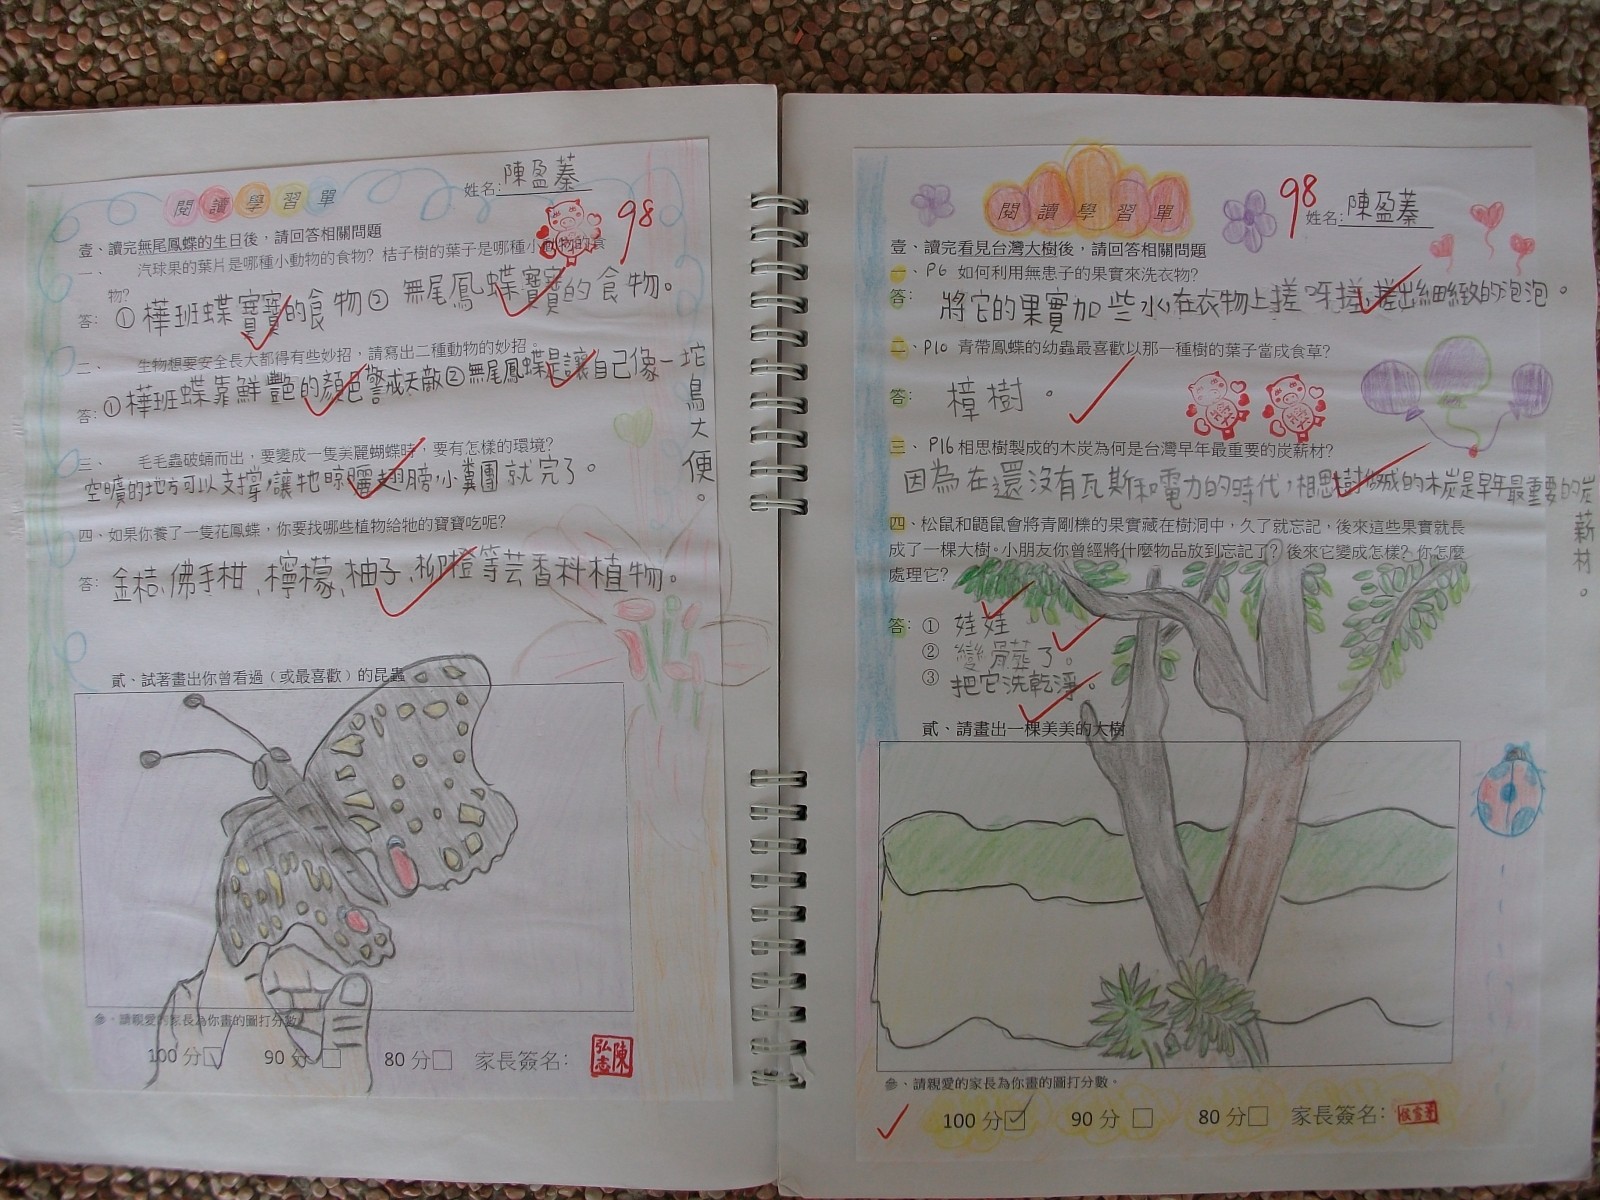 閱讀學習單
姓名:陳盈蓁
98
壹、讀完無尾鳳蝶的生日後，請回答相關問題
一、 汽球果的葉片是哪種小動物的食物？桔子樹的葉子是哪種小動物的食物？
答：①樺班蝶寶寶的食物②無尾鳳蝶寶寶的食物。
二、 生物想要安全長大都得有些妙招，請寫出二種動物的妙招。
答：①樺班蝶靠鮮豔的顏色警戒天敵②無尾鳳蝶是讓自己像一坨鳥大便。
三、 毛毛蟲破蛹而出，要變成一隻美麗蝴蝶時，要有怎樣的環境？
空曠的地方可以支撐，讓牠晾曬翅膀，小糞團就完了。
四、如果你養了一隻花鳳蝶，你要找哪些植物給牠的寶寶吃呢？
答：金桔、佛手柑、檸檬、柚子、柳橙等芸香科植物。
貳、試著畫出你曾看過（或最喜歡）的昆蟲
參、請親愛的家長為你畫的圖打分數。
100 分□ 90 分□ 80 分□ 家長簽名：
陳弘志
閱讀學習單
98
姓名:陳盈蓁
壹、讀完看見台灣大樹後，請回答相關問題
一、P6 如何利用無患子的果實來洗衣物？
答：將它的果實加些水在衣物上搓呀搓，搓出細緻的泡泡。
二、P10 青帶鳳蝶的幼蟲最喜歡以那一種樹的葉子當成食草？
答：樟樹。
三、P16 相思樹製成的木炭為何是台灣早年最重要的炭薪材？
因為在還沒有瓦斯和電力的時代，相思樹做成的木炭是早年最重要的炭薪材。
四、松鼠和鼯鼠會將青剛櫟的果實藏在樹洞中，久了就忘記，後來這些果實就長
成了一棵大樹。小朋友你曾經將什麼物品放到忘記了？後來它變成怎樣？你怎麼
處理它？
答：①娃娃
②變骨董了。
③把它洗乾淨。
貳、請畫出一棵美美的大樹
參、請親愛的家長為你畫的圖打分數。
100 分☑ 90 分□ 80 分□ 家長簽名：